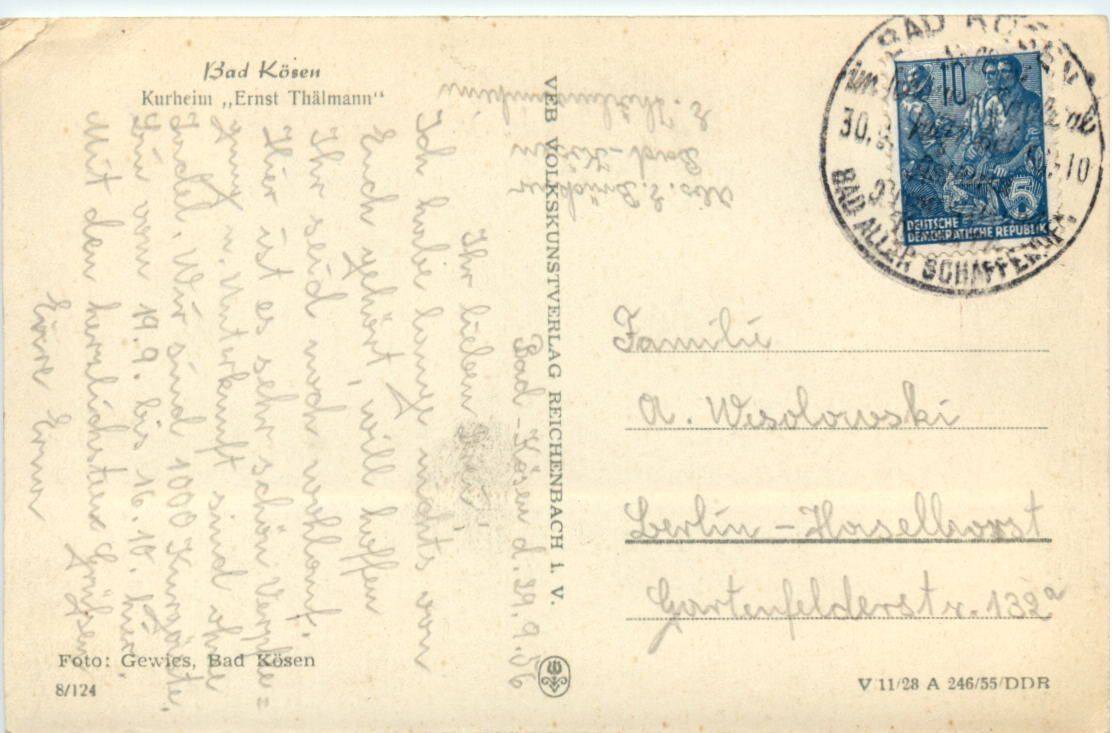 Bad Kösen
Kurheim „Ernst Thälmann“
Abs. E. Brückner
Bad-Kösen
E. Thälmannheim
Bad-Kösen d. 29.9.56
Ihr lieben
Ich habe lange nichts von
Euch gehört, will hoffen
Ihr seid noch wohlauf.
Hier ist es sehr schön Verpfle=
gung u. Unterkunft sind ohne
Tadel. Wir sind 1000 Kurgäste.
Bin vom 19.9. bis 16.10. hier.
Mit den herzlichsten Grüßen
Eure Erna
Foto: Gewies, Bad Kösen
8/124
VEB VOLKSKUNSTVERLAG REICHENBACH i. V.
BAD KÖSEN
30.9.
-10
BAD ALLER SCHAFFENDEN
10
5
DEUTSCHE
DEMOKRATISCHE REPUBLIK
Familie
A. Wesolowski
Berlin-Haselhorst
Gartenfelderstr. 132a
V 11/28 A 246/55/DDR